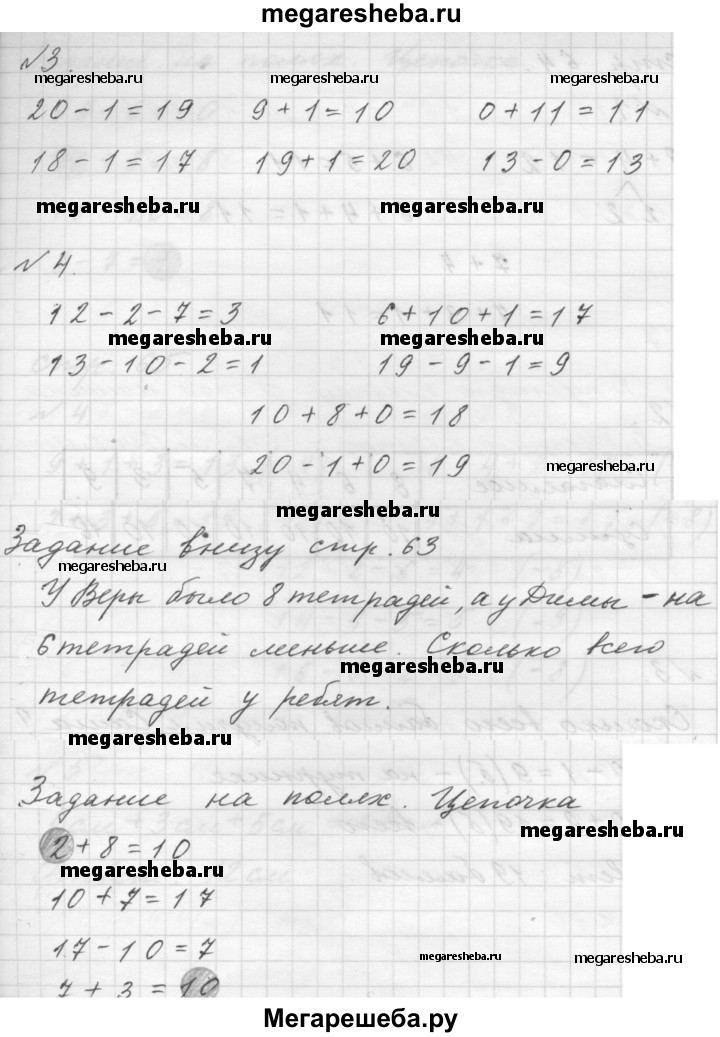 megaresheba.ru
№3
megaresheba.ru megaresheba.ru megaresheba.ru
20 - 1 = 19 9 + 1 = 10 0 + 11 = 11
18 - 1 = 17 19 + 1 = 20 13 - 0 = 13
megaresheba.ru megaresheba.ru
№4.
12 - 2 - 7 = 3 6 + 10 + 1 = 17
megaresheba.ru megaresheba.ru
13 - 10 - 2 = 1 19 - 9 - 1 = 9
10 + 8 + 0 = 18
20 - 1 + 0 = 19 megaresheba.ru
megaresheba.ru
Задание внизу стр. 63
megaresheba.ru
У Веры было 8 тетрадей, а у Димы - на
6 тетрадей меньше. Сколько всего
megaresheba.ru
тетрадей у ребят.
megaresheba.ru
Задание на полях. Цепочка
megaresheba.ru
2 + 8 = 10
megaresheba.ru
10 + 7 = 17
17 - 10 = 7
megaresheba.ru megaresheba.ru
7 + 3 = 10
Мегарешеба.ру